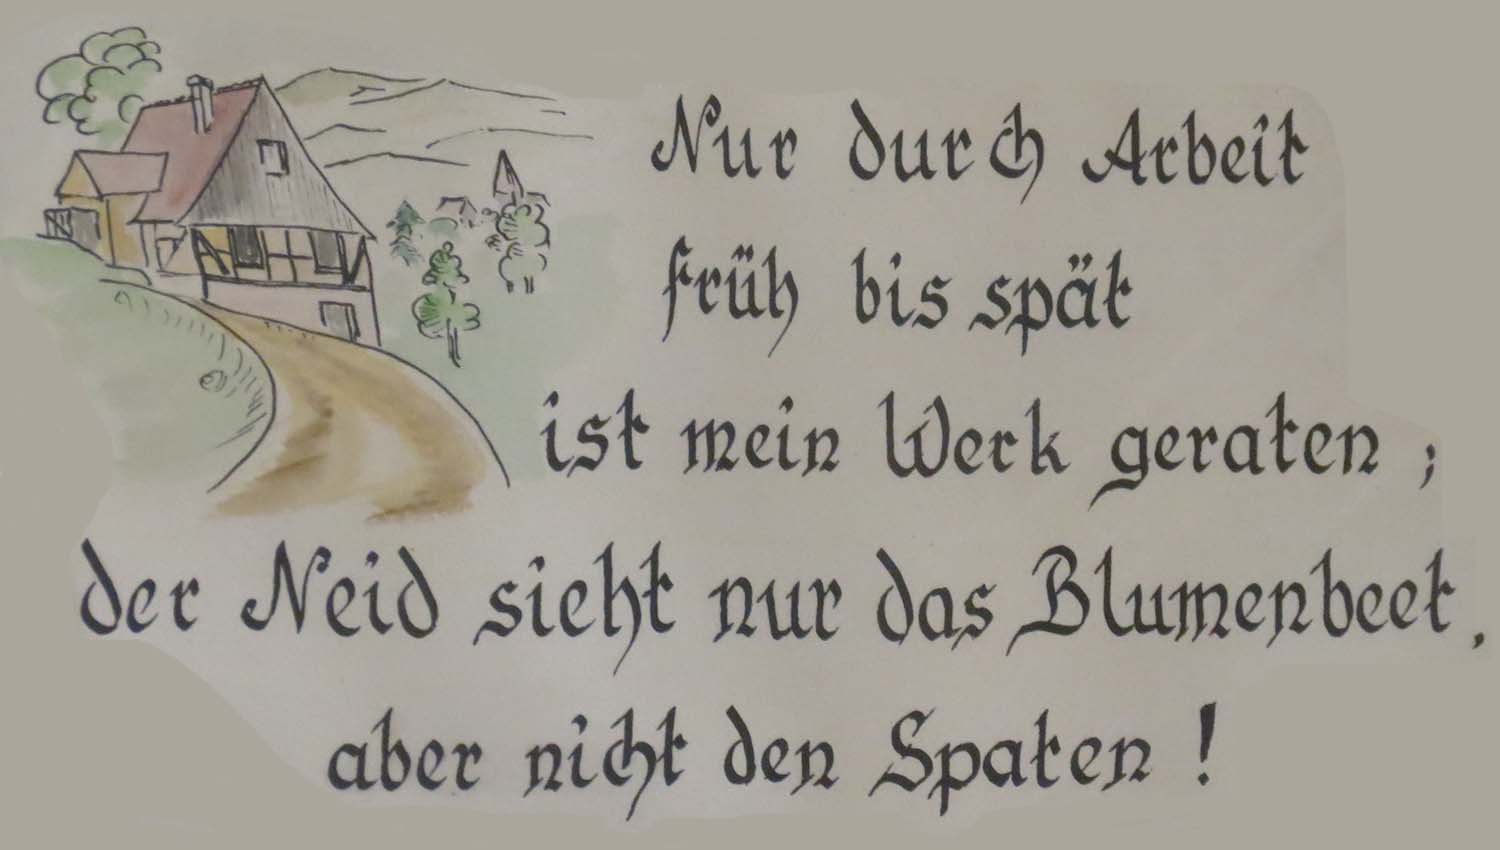 Nur durch Arbeit
früh bis spät
ist mein Werk geraten ;
der Neid sieht nur das Blumenbeet,
aber nicht den Spaten !